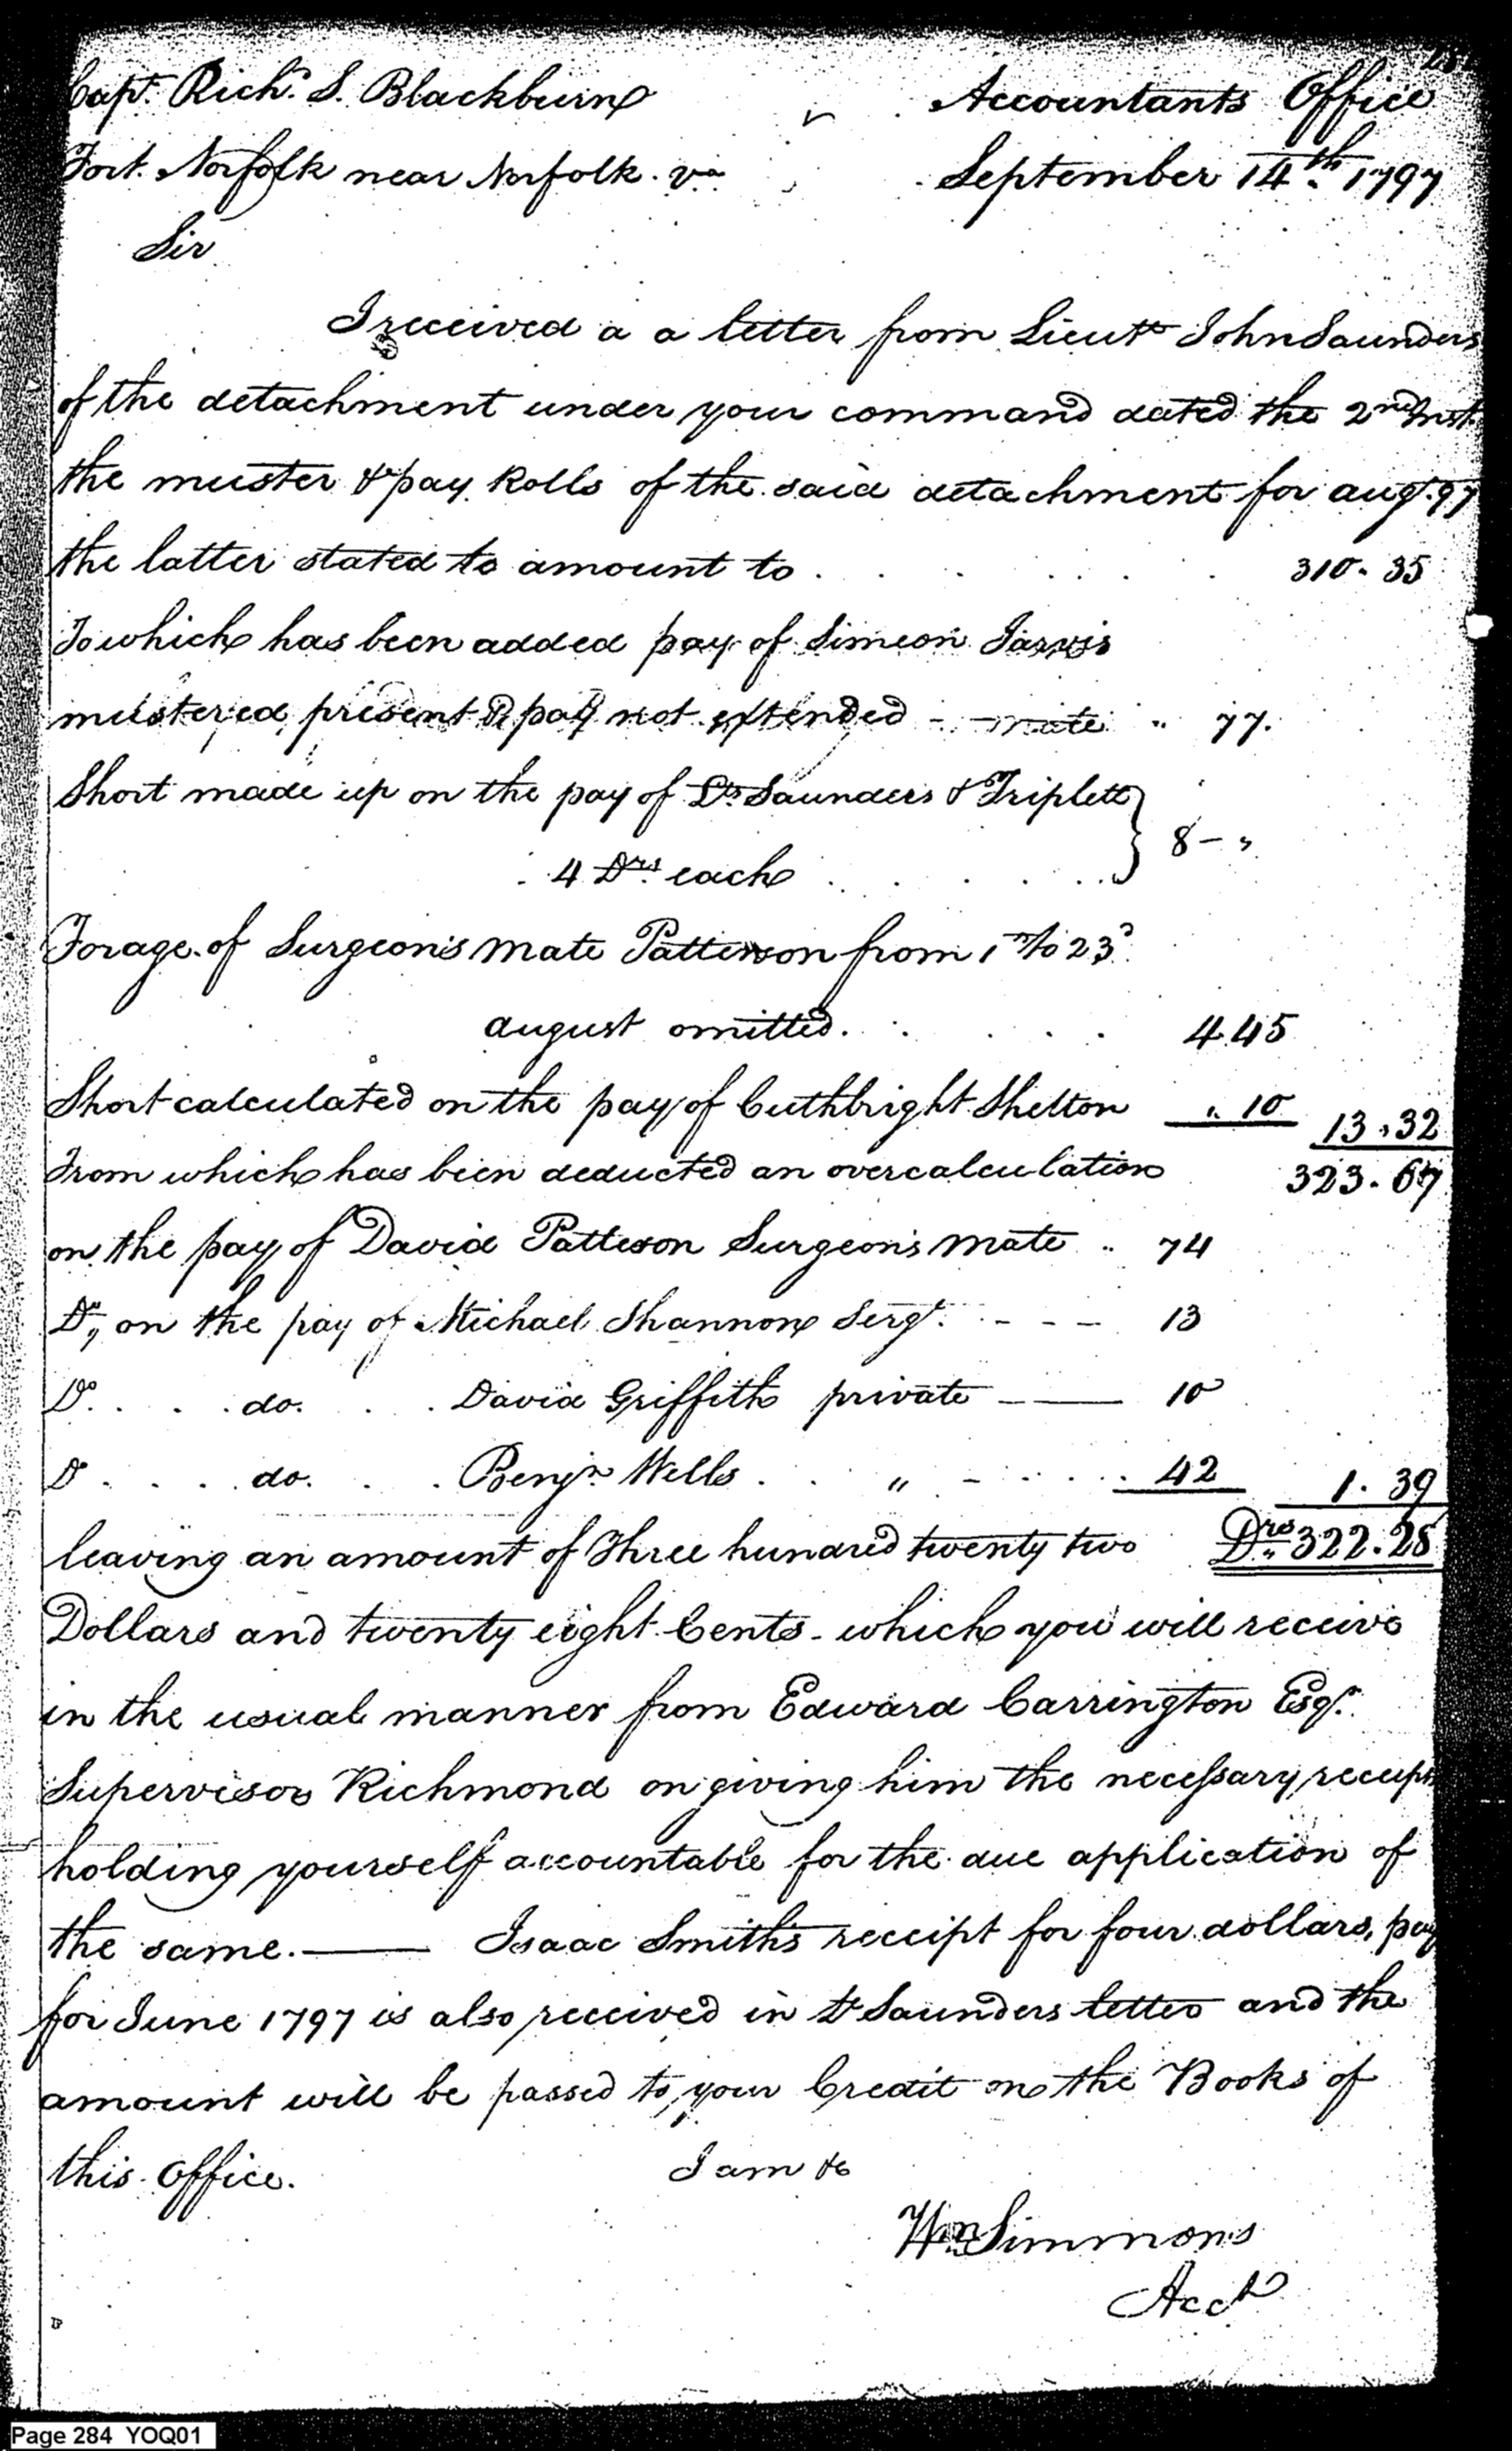 Capt. Richd. S. Blackburn Accountants Office
Fort Norfolk near Norfolk. Va September 14th. 1797
Sir
I received a a letter from Lieut. John Saunders
of the detachment under your command dated the 2nd Inst.
the muster & pay Rolls of the said detachment for augt. 97
the latter stated to amount to . . . . . . 310. 35
To which has been added pay of Simeon Jarvis
mustered present & pay not extended - " 77.
Short made up on the pay of Lts. Saunders & Triplett }
4 Drs. each . . . . . } 8 - "
Forage of Surgeon's Mate Patterson from 1st to 23d.
august omitted. . . . . 4.45
Short calculated on the pay of Cuthbright Shelton " 10 13.32
From which has been deducted an overcalculation 323. 67
on the pay of David Patterson Surgeon's Mate " 74
Do, on the pay of Michael Shannon Sergt. - - - 13
Do. . . . do. . . . David Griffith private - — 10
Do . . . . do. . . . Benjn. Wells . . " - . . . 42 1. 39
leaving an amount of Three hundred twenty two Drs. 322.28
Dollars and twenty eight Cents - which you will receive
in the usual manner from Edward Carrington Esqr.
Supervisor Richmond on giving him the necessary receipts
holding yourself accountable for the due application of
the same. — Isaac Smith's receipt for four dollars, pay
for June 1797 is also received in Lt Saunders letter and the
amount will be passed to your Credit on the Books of
this Office. I am &c
Wm Simmons
Acct
Page 284 YOQ01